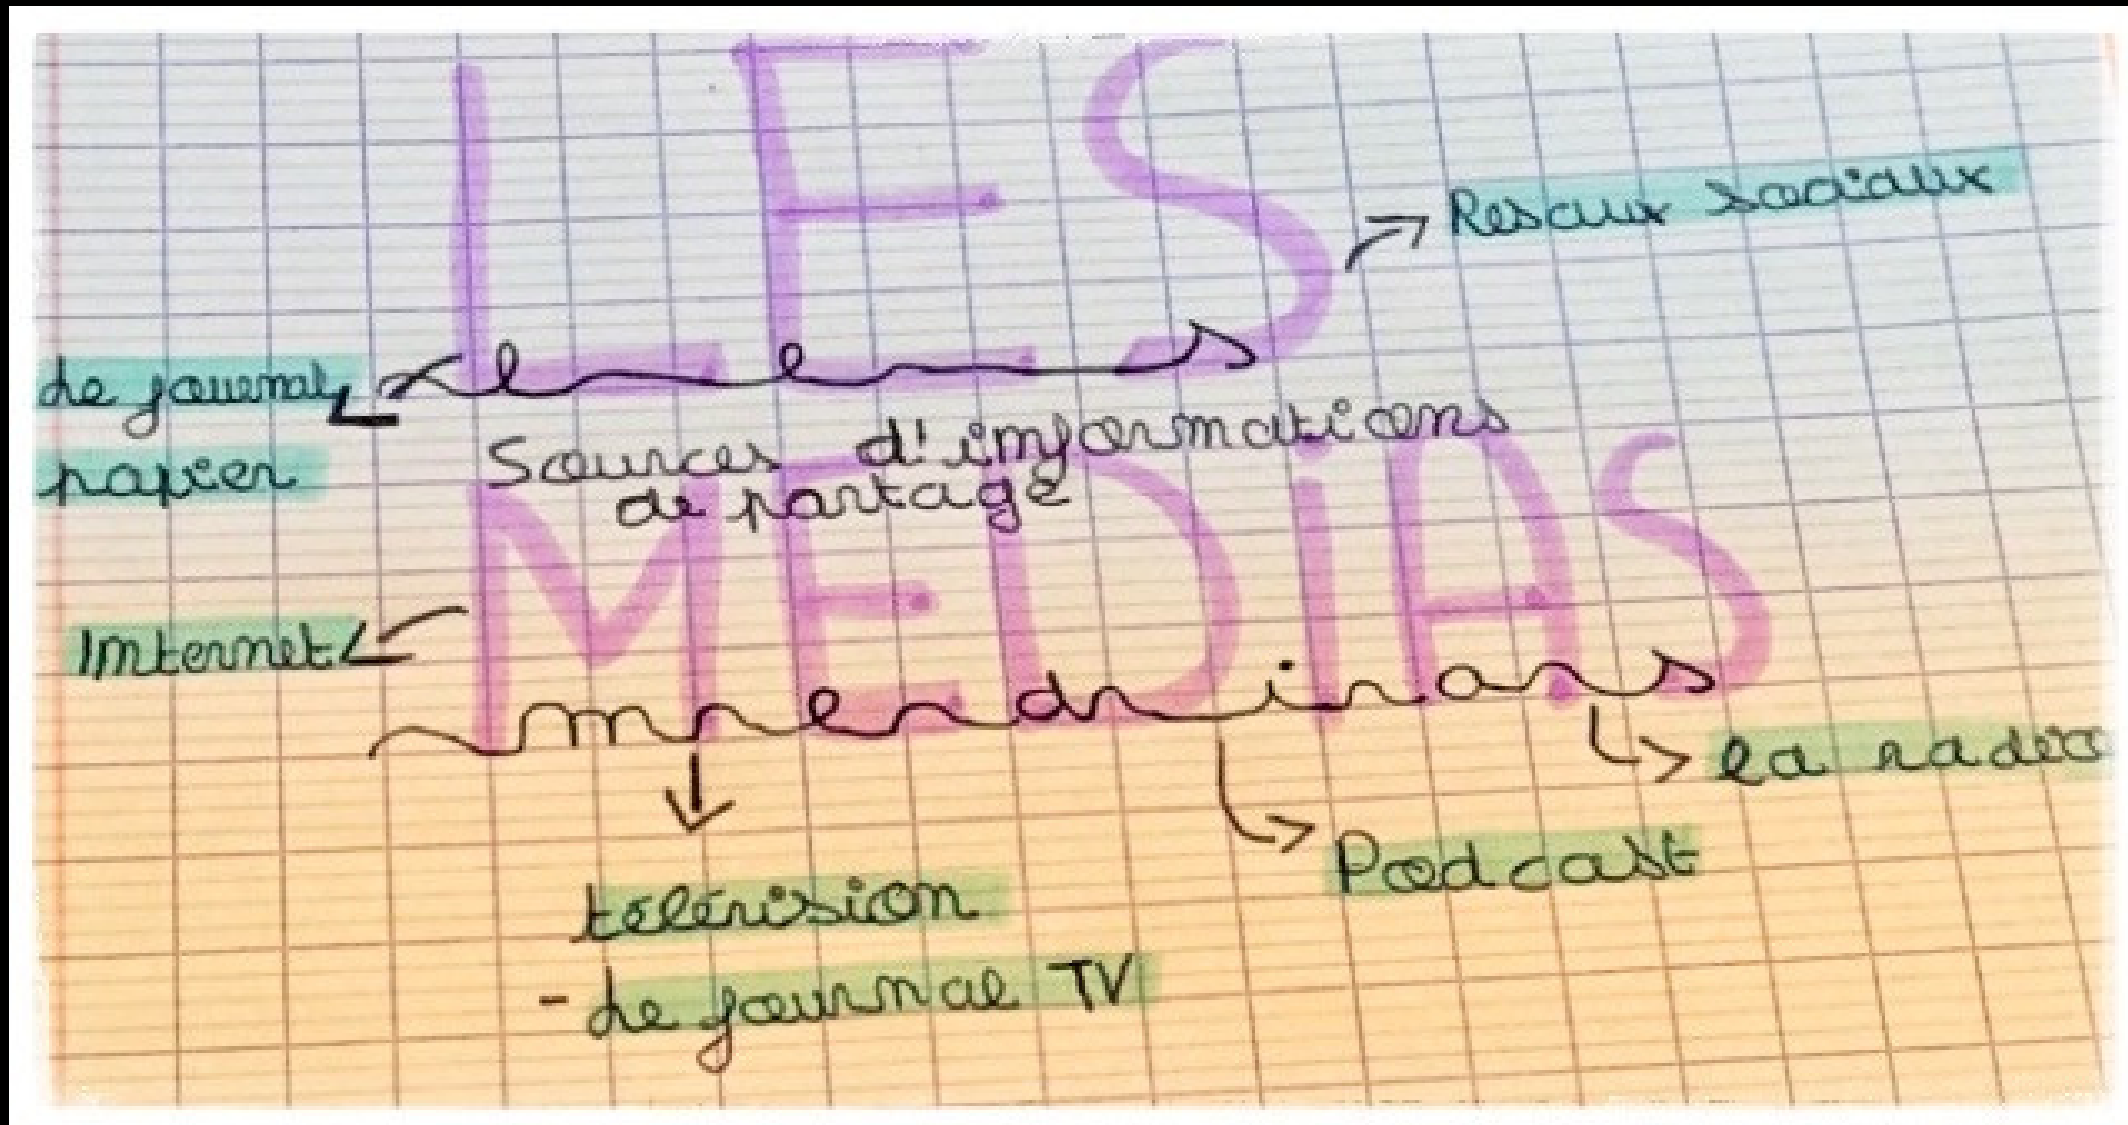 LES
Resaux sociaux
les
Le journal
papier
Sources d'informations
de partage
MEDiAS
Internet
medias
la radio
Podcast
télévision
- Le journal TV